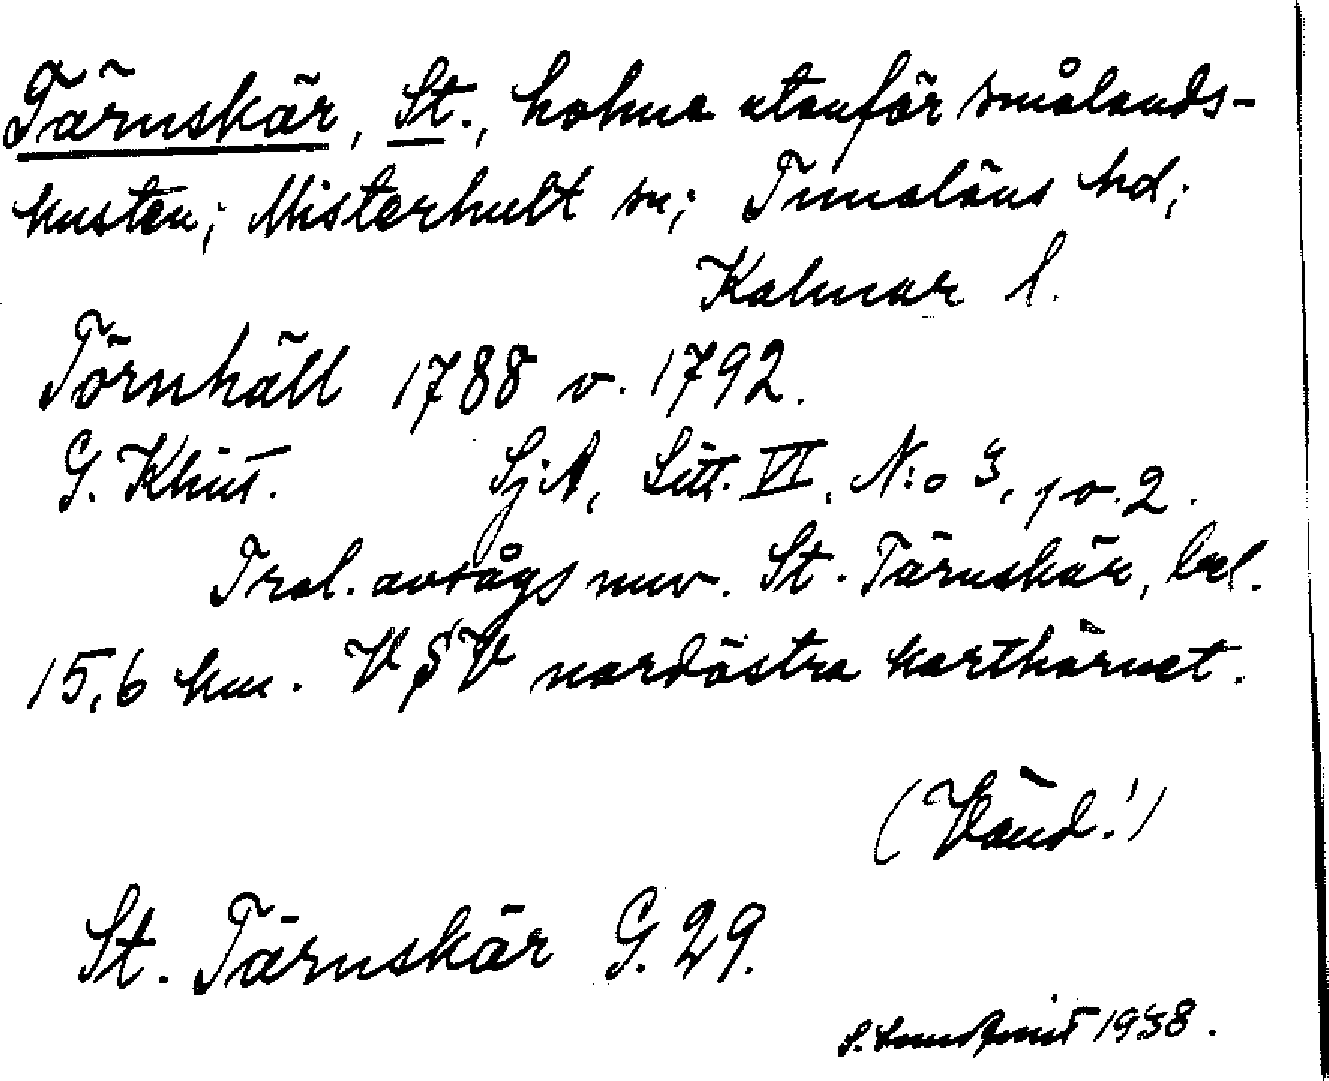 Tärnskär, St., holme utanför smålands-
kusten; Misterhult sn; Tunaläns hd;
Kalmar l.
Törnhäll 1788 o. 1792.
G. Klint. SjA, Litt. VI, N:o 3, 1 o. 2.
Trol. avsågs nuv. St. Tärnskär, bel.
15,6 km. V § V nordöstra karthörnet.
(Vänd!)
St. Tärnskär G. 29.
S. 1938.